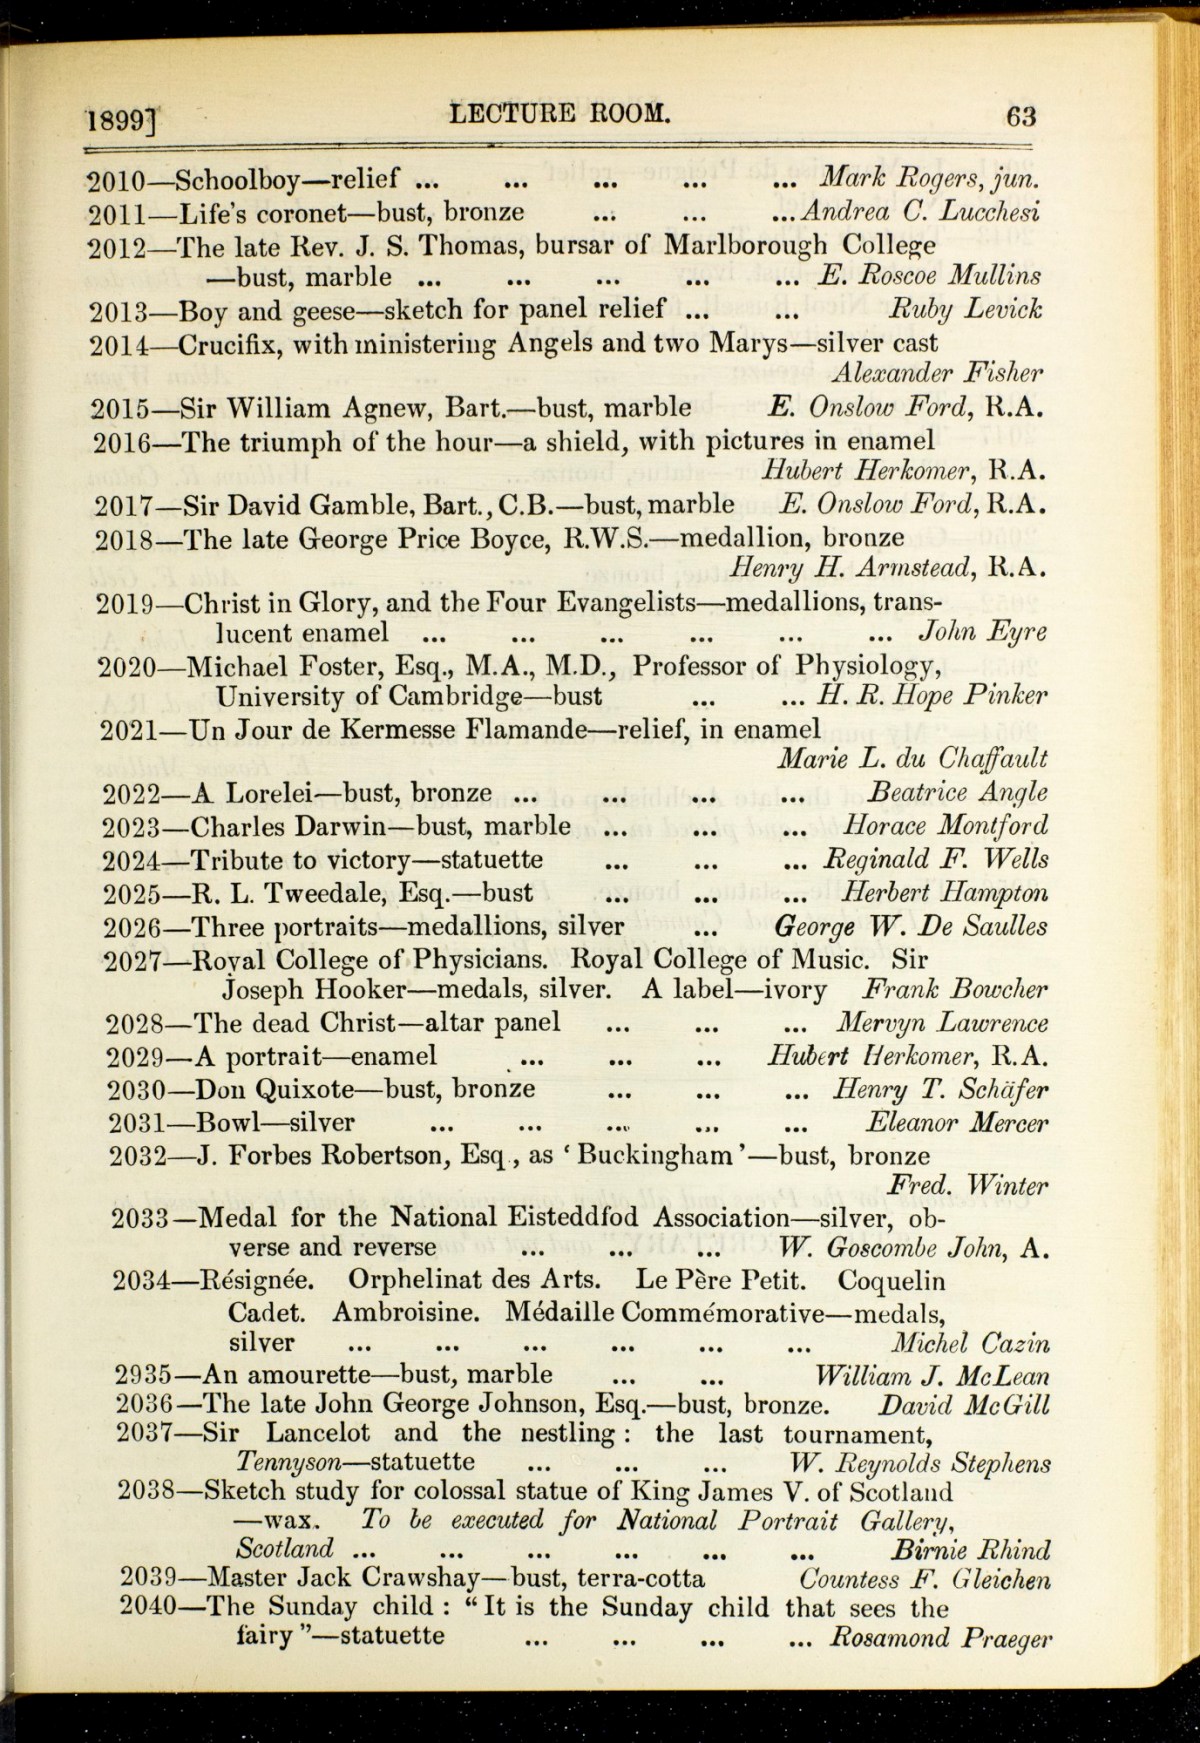 1899] LECTURE ROOM. 63
2010—Schoolboy—relief ... ... ... ... ... Mark Rogers, jun.
2011—Life's coronet—bust, bronze ... ... ... Andrea C. Lucchesi
2012—The late Rev. J. S. Thomas, bursar of Marlborough College
—bust, marble ... ... ... ... ... E. Roscoe Mullins
2013—Boy and geese—sketch for panel relief ... ... Ruby Levick
2014—Crucifix, with ministering Angels and two Marys—silver cast
Alexander Fisher
2015—Sir William Agnew, Bart.—bust, marble E. Onslow Ford, R.A.
2016—The triumph of the hour—a shield, with pictures in enamel
Hubert Herkomer, R.A.
2017—Sir David Gamble, Bart., C.B.—bust, marble E. Onslow Ford, R.A.
2018—The late George Price Boyce, R.W.S.—medallion, bronze
Henry H. Armstead, R.A.
2019—Christ in Glory, and the Four Evangelists—medallions, trans-
lucent enamel ... ... ... ... ... ... John Eyre
2020—Michael Foster, Esq., M.A., M.D., Professor of Physiology,
University of Cambridge—bust ... ... H. R. Hope Pinker
2021—Un Jour de Kermesse Flamande—relief, in enamel
Marie L. du Chaffault
2022—A Lorelei—bust, bronze ... ... ... ... Beatrice Angle
2023—Charles Darwin—bust, marble ... ... ... Horace Montford
2024—Tribute to victory—statuette ... ... ... Reginald F. Wells
2025—R. L. Tweedale, Esq.—bust ... ... ... Herbert Hampton
2026—Three portraits—medallions, silver ... George W. De Saulles
2027—Royal College of Physicians. Royal College of Music. Sir
Joseph Hooker—medals, silver. A label—ivory Frank Bowcher
2028—The dead Christ—altar panel ... ... ... Mervyn Lawrence
2029—A portrait—enamel ... ... ... Hubert Herkomer, R.A.
2030—Don Quixote—bust, bronze ... ... ... Henry T. Schäfer
2031—Bowl—silver ... ... ... ... ... Eleanor Mercer
2032—J. Forbes Robertson, Esq., as ‘Buckingham’—bust, bronze
Fred. Winter
2033—Medal for the National Eisteddfod Association—silver, ob-
verse and reverse ... ... ... W. Goscombe John, A.
2034—Résignée. Orphelinat des Arts. Le Père Petit. Coquelin
Cadet. Ambroisine. Médaille Commémorative—medals,
silver ... ... ... ... ... ... Michel Cazin
2935—An amourette—bust, marble ... ... William J. McLean
2036—The late John George Johnson, Esq.—bust, bronze. David McGill
2037—Sir Lancelot and the nestling: the last tournament,
Tennyson—statuette ... ... ... W. Reynolds Stephens
2038—Sketch study for colossal statue of King James V. of Scotland
—wax. To be executed for National Portrait Gallery,
Scotland ... ... ... ... ... ... Birnie Rhind
2039—Master Jack Crawshay—bust, terra-cotta Countess F. Gleichen
2040—The Sunday child: “It is the Sunday child that sees the
fairy”—statuette ... ... ... ... Rosamond Praeger